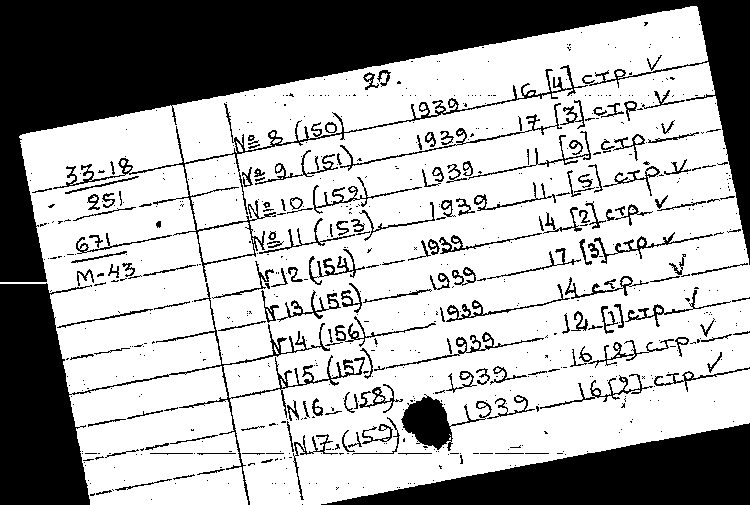 20.
33-18
251
671
М-43
№ 8 (150) 1939. 16, [4] стр. ✓
№ 9. (151). 1939. 17, [3] стр. ✓
№ 10 (152) 1939. 11, [9] стр. ✓
№ 11 (153). 1939. 11, [5] стр. ✓
N 12 (154) 1939. 14, [2] стр. ✓
N 13 (155) 1939 17, [3] стр. ✓
N 14. (156). 1939. 14 стр. ✓
N 15 (157) 1939. 12, [1] стр. ✓
N 16. (158). 1939. 16, [2] стр. ✓
N 17. (159). 1939. 16, [2] стр. ✓